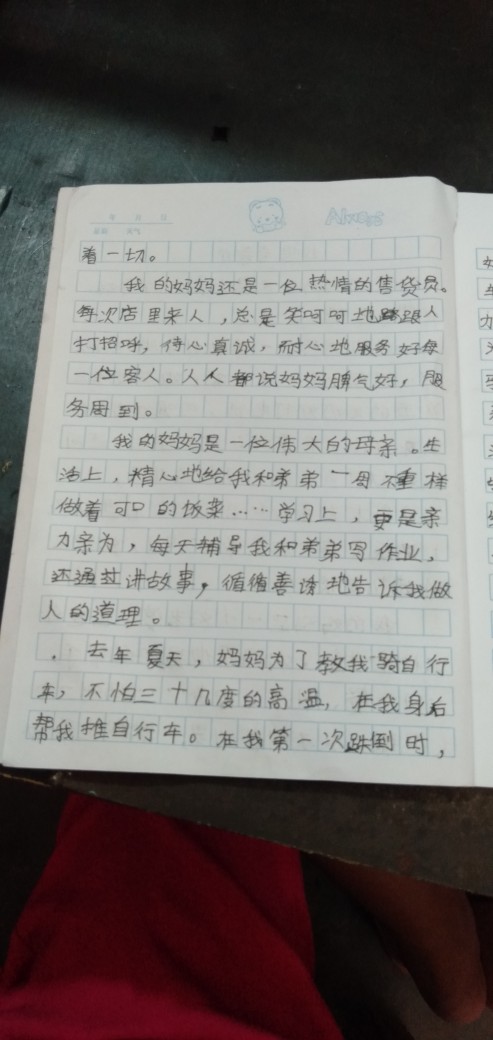 年 月 日
Always
星期 天气
着一切。
我的妈妈还是一位热情的售货员。
每次店里来人，总是笑呵呵地跟人
打招呼，待心真诚，耐心地服务好每
一位客人。人人都说妈妈脾气好，服
务周到。
我的妈妈是一位伟大的母亲。生
活上，精心地给我和弟弟一日不重样
做着可口的饭菜……学习上，更是亲
力亲为，每天辅导我和弟弟写作业，
还通过讲故事，循循善诱地告诉我做
人的道理。
去年夏天，妈妈为了教我骑自行
车，不怕三十几度的高温，在我身后
帮我推自行车。在我第一次跌倒时，